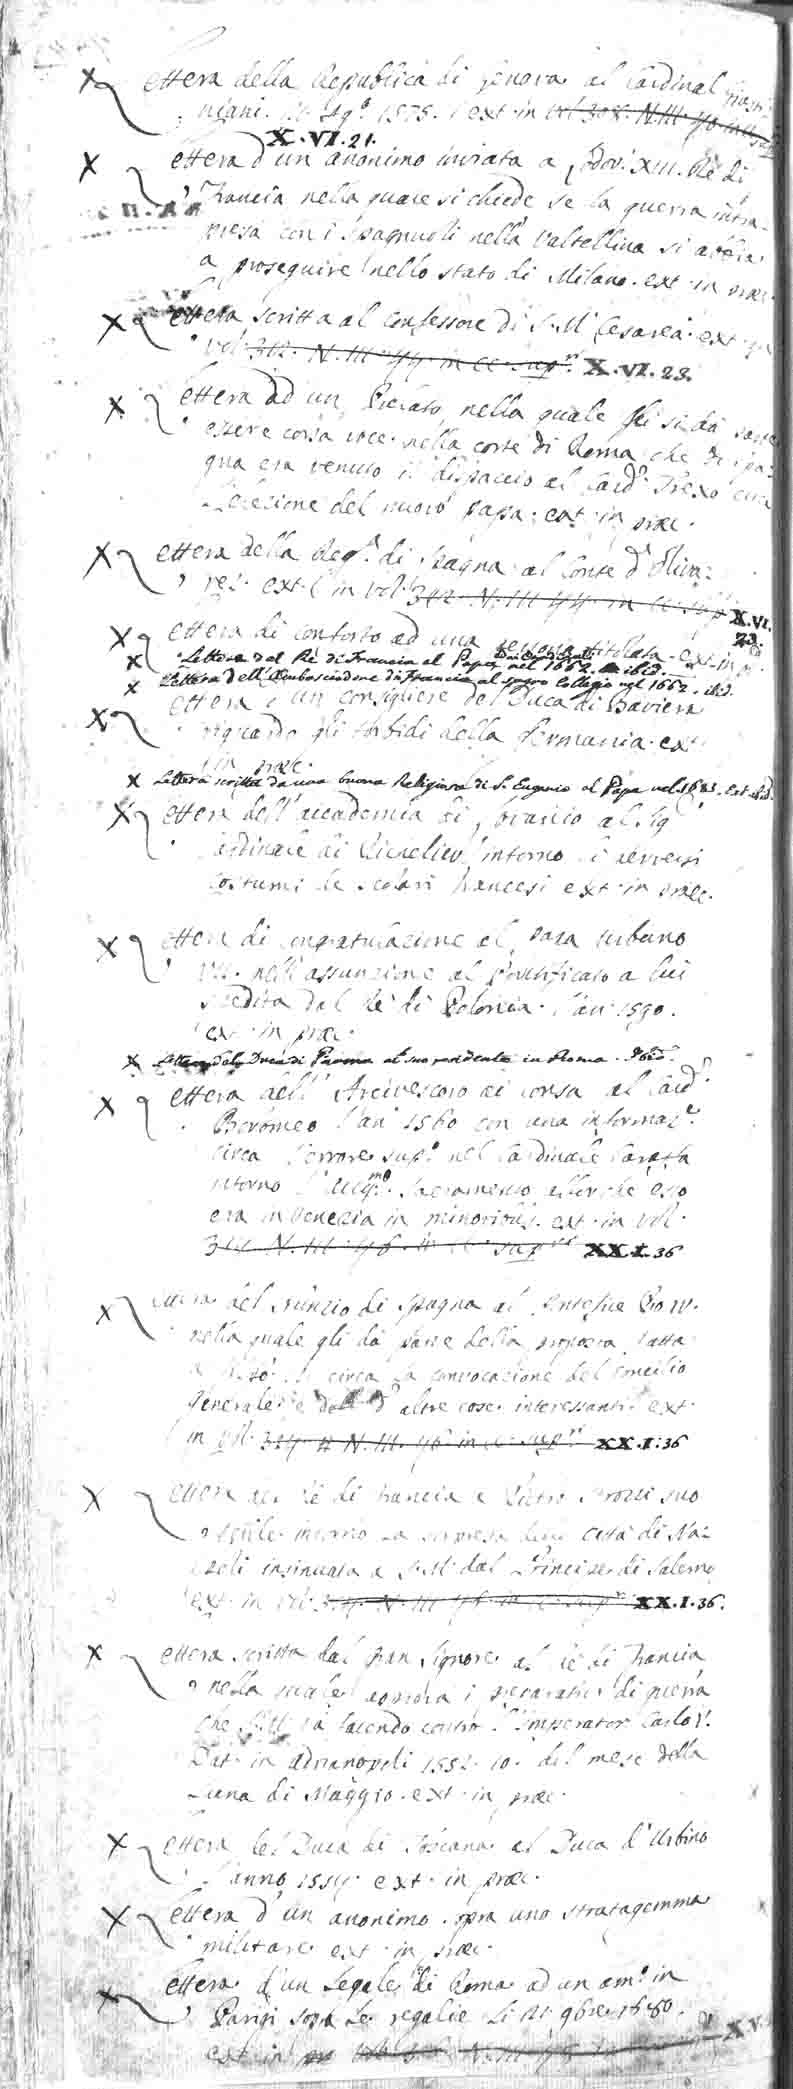 Lettera della Republica di Genova al Cardinal Giusti
niani. 1575. ext in vol 308. N. III.
X. VI. 21.
Lettera d'un anonimo inviata a Lodov. XIII. Re di
Francia nella quale si chiede se la guerra intra-
presa con i Spagnuoli nella Valtellina si abbia
a proseguire nello stato di Milano. ext in præc.
Lettera scritta al confessore di S. M. Cesarea. ext
vol 312. N. III. 44. in cc. supri X. VI. 23.
Lettera ad un Prelato, nella quale gli si dà parte
essere corsa voce nella corte di Roma che di Spa-
gna era venuto il dispaccio al Card. Trexo circa
L'elezione del nuovo papa. ext in præc.
Lettera della Rega. di Spagna al Conte d'Oliva-
res. ext. in vol. 312. N. III 44. in cc sup X. VI.
23.
Lettera di conforto ad una persona titolata. ext. in p.
Lettera del Rè di Francia al Papa nel 1662. ibid.
Lettera dell'Ambasciadore di Francia al sacro Collegio nel 1662. ibid.
Lettera d'un consigliere del Duca di Baviera
riguardo gli torbidi della Germania. ext
in præc.
Lettera scritta da una buona Religiosa di S. Eugenio al Papa nel 1683. Ext. ibid.
Lettera dell'accademia di al Sig
Cardinale di Richelieu intorno i perversi
costumi de scolari francesi ext. in præc.
Lettera di congratulazione al papa Urbano
VII. nell'assunzione al Pontificato a lui
spedita dal Rè di Polonia. l'an. 1590.
ext. in præc.
Lettera del Duca di Parma al suo residente in Roma. Ibid.
Lettera dell'Arcivescovo di Corsa al Card.
Boromeo l'an 1560 con una informaz.e
circa l'errore sup.o nel Cardinale Caraffa
intorno l'Aug.mo Sacramento allorche esso
era in Venezia in minoribus. ext. in vol.
314 N. III. 46. in cc. supri XX. I. 36
Lettera del Nunzio di Spagna al Pontefice Pio IV.
nella quale gli dà parte della proposta fatta
a circa la convocazione del concilio
generale e d'altre cose interessanti. ext.
in vol. 314. N. III. 46. in cc. supri XX. I. 36
Lettera del Rè di Francia a Pietro Strozzi suo
intorno la sorpresa della Città di Na-
poli insinuata a S. M. dal Principe di Salerno
ext. in vol. 314. N. III 46. in cc. supri XX. I. 36.
Lettera scritta dal gran Signore al Rè di Francia
nella quale i preparativi di guerra
che facendo contro l'Imperator Carlo V.
Dat. in Adrianopoli 1552. 10. del mese della
Luna di Maggio. ext. in præc.
Lettera del Duca di Toscana al Duca d'Urbino
l'anno 1554. ext. in præc.
Lettera d'un anonimo sopra uno stratagemma
militare. ext. in præc.
Lettera d'un Legale di Roma ad un am.o in
Parigi sopra le regalie li 21. 9bre 1680.
ext in N. III XV